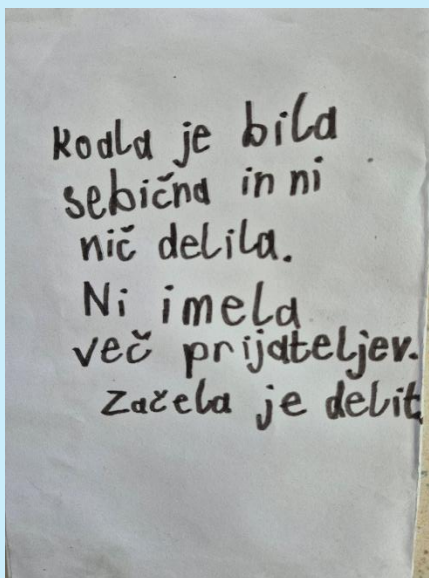 koala je bila
sebična in ni
nič delila.
Ni imela
več prijateljev.
Začela je delit